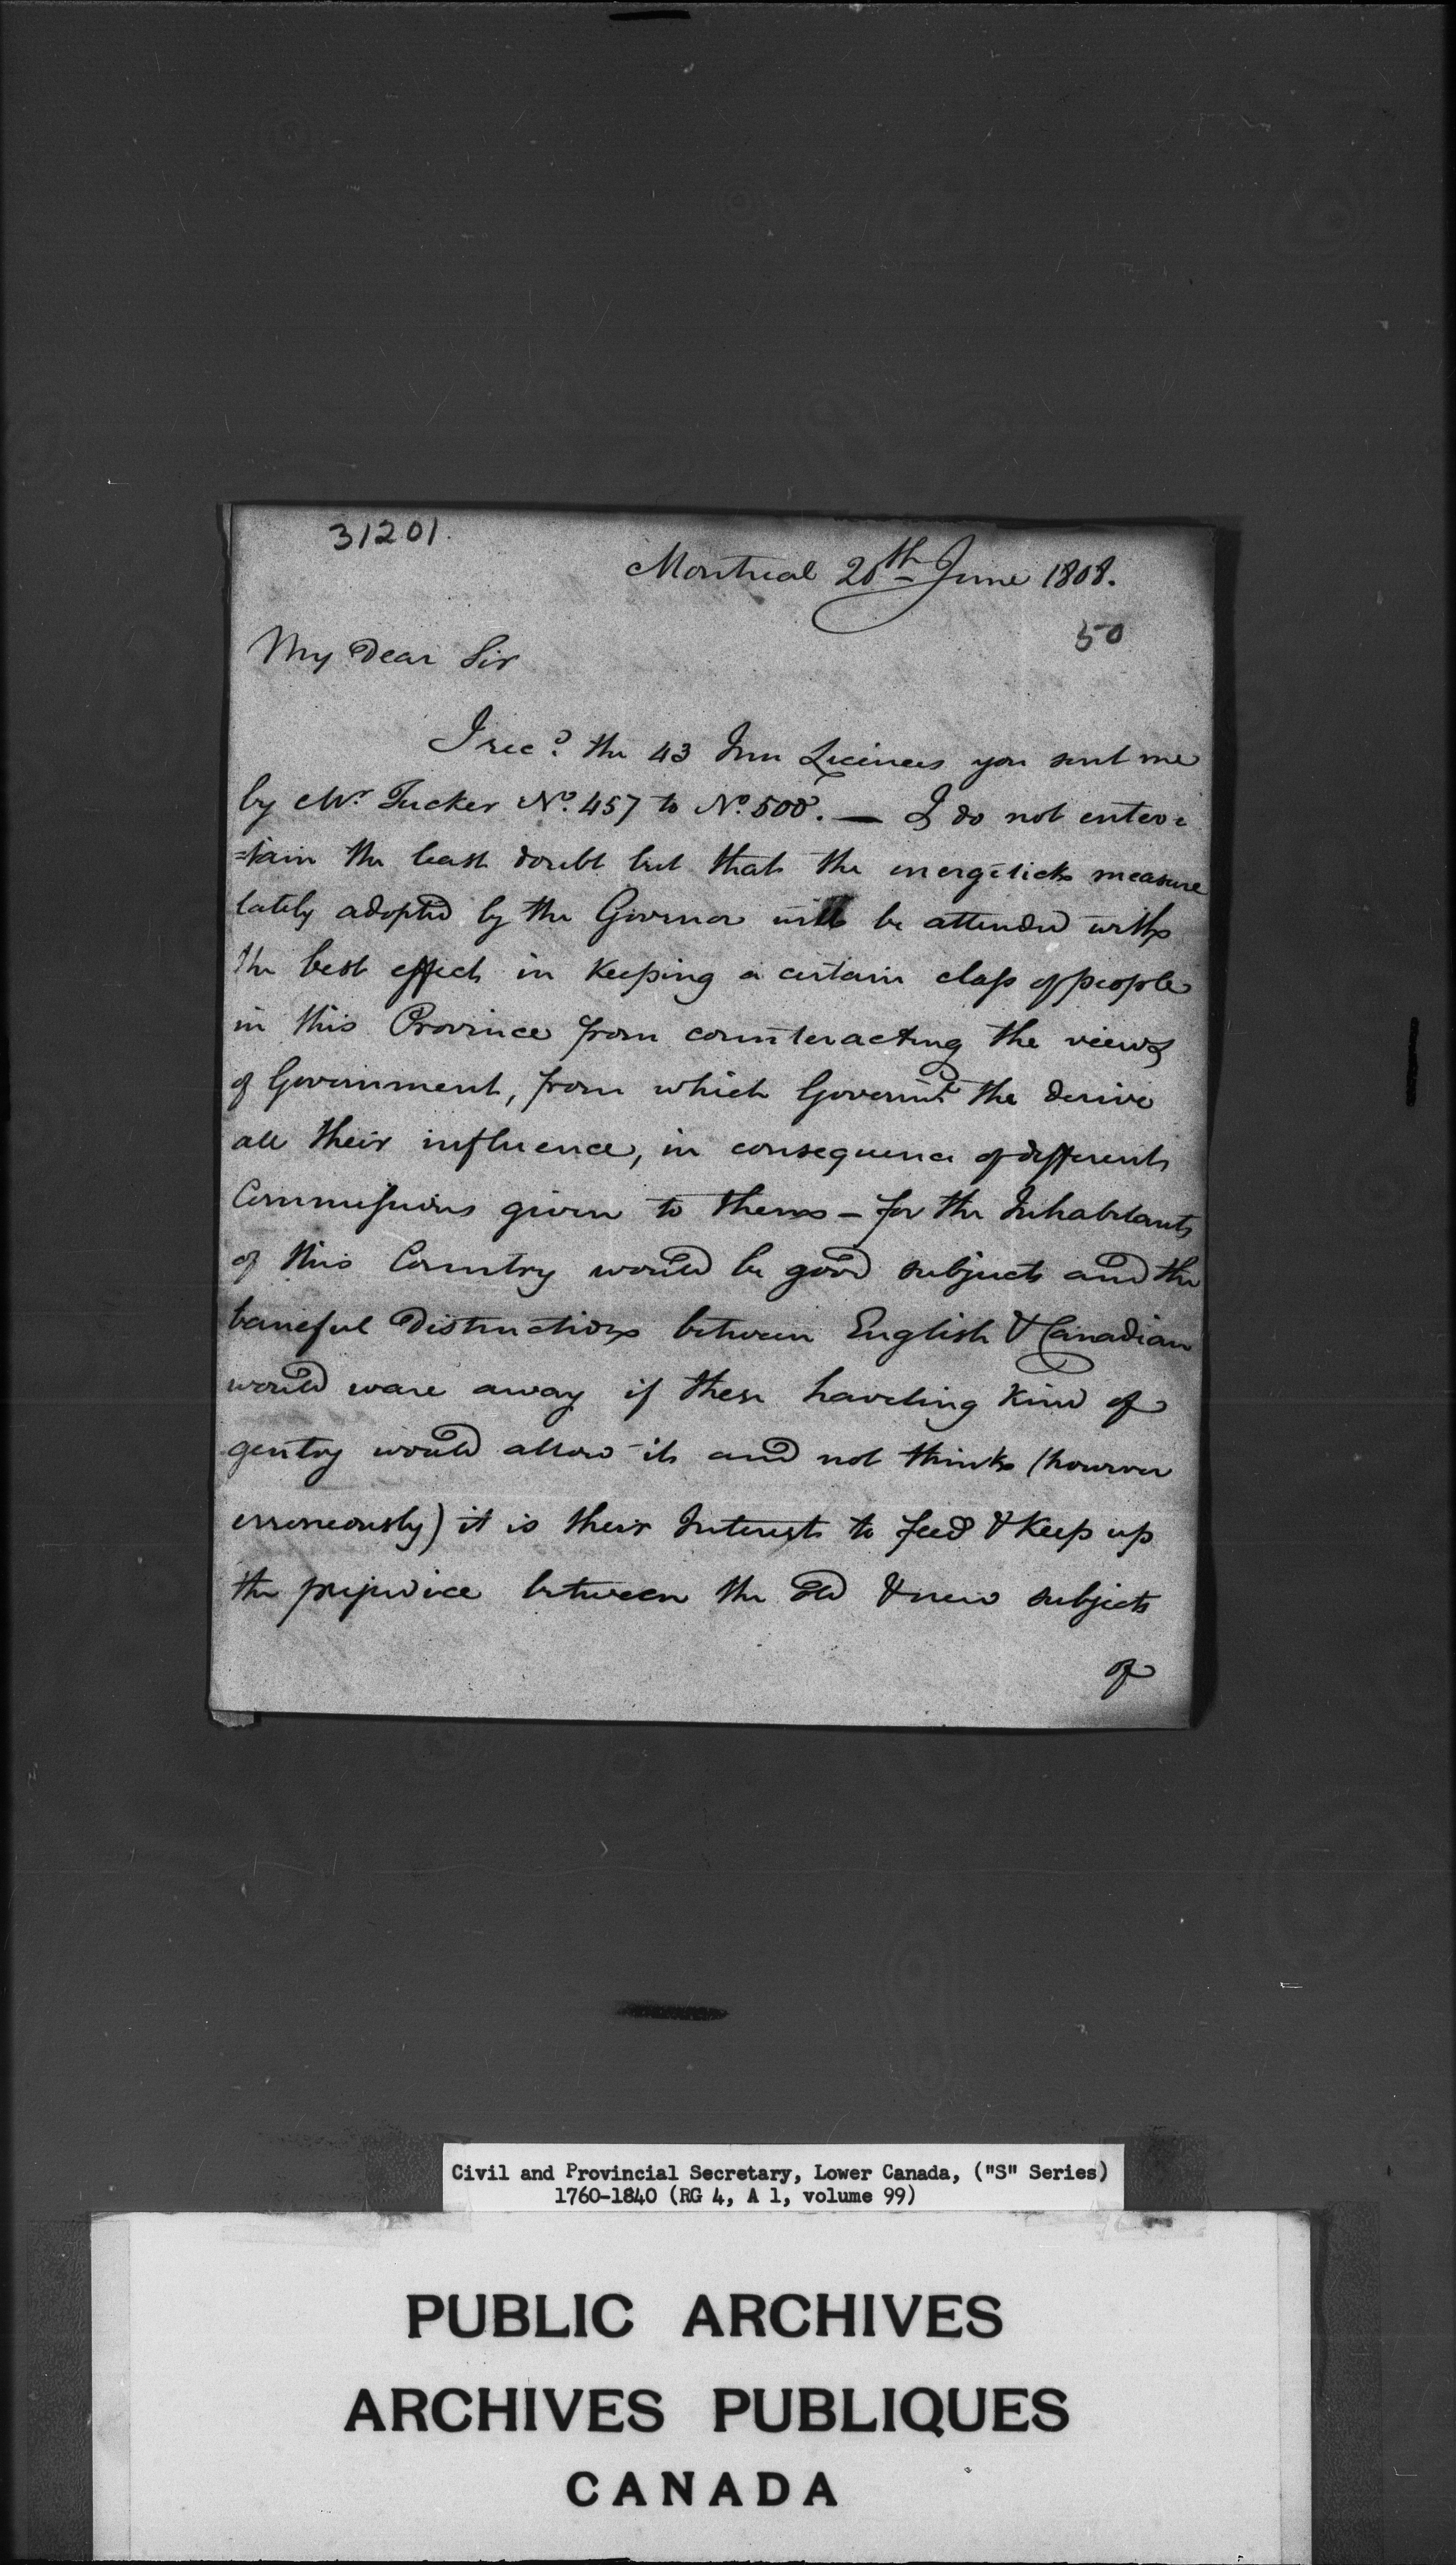 31201.
Montreal 20th June 1808.
50
My Dear Sir
I recd. the 43 Inn Licences you sent me
by Mr. Tucker No. 457 to No. 500. — I do not enter=
=tain the least doubt but that the energetick measure
lately adopted by the Governor will be attended with
the best effect in Keeping a certain class of people
in this Province from counteracting the views
of Government, from which Governmt. the derive
all their influence, in consequence of different
Commissions given to them – for the Inhabitants
of this Country would be good subjects and the
baneful Distinction between English & Canadian
would ware away if these kind of
gentry would allow it and not think (however
erroneously) it is their Interest to feed & Keep up
the prejudice between the old & new subjects
of
Civil and Provincial Secretary, Lower Canada, ("S" Series)
1760-1840 (RG 4, A 1, volume 99)
PUBLIC ARCHIVES
ARCHIVES PUBLIQUES
CANADA